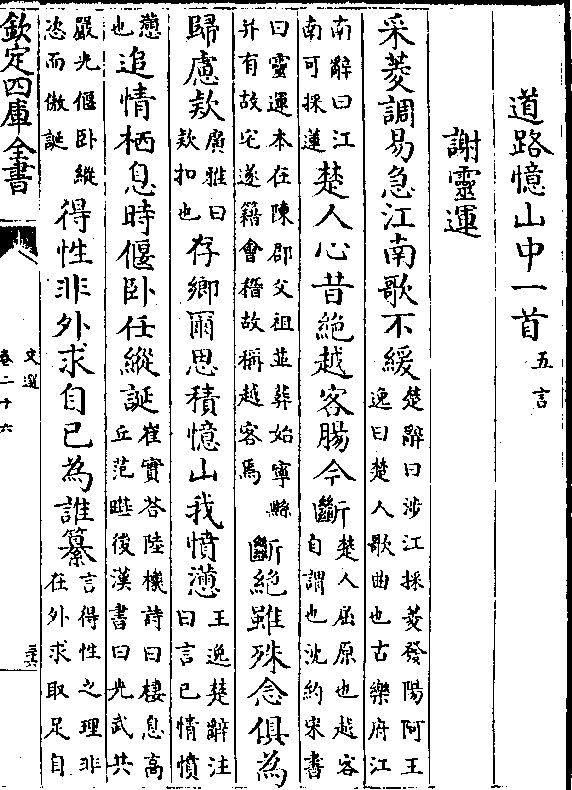 道路憶山中一首五言
謝靈運
采菱調易急江南歌不緩楚辭曰涉江採菱發陽阿王逸曰楚人歌曲也古樂府江
南辭曰江南可採蓮楚人心昔絶越客腸今斷楚人屈原也越客自謂也沈約宋書
曰靈運本在陳郡父祖並葬始寧縣并有故宅遂籍會稽故稱越客焉斷絶雖殊念俱為
歸慮款廣雅曰款扣也存鄉爾思積憶山我憤懣王逸楚辭注曰言己情憤
懣也追情栖息時偃卧任縱誕崔實答陸機詩曰棲息高丘范曄後漢書曰光武共
嚴光偃卧縱恣而傲誕得性非外求自已為誰纂言得性之理非在外求取足自
欽定四庫全書
文選
卷二十六